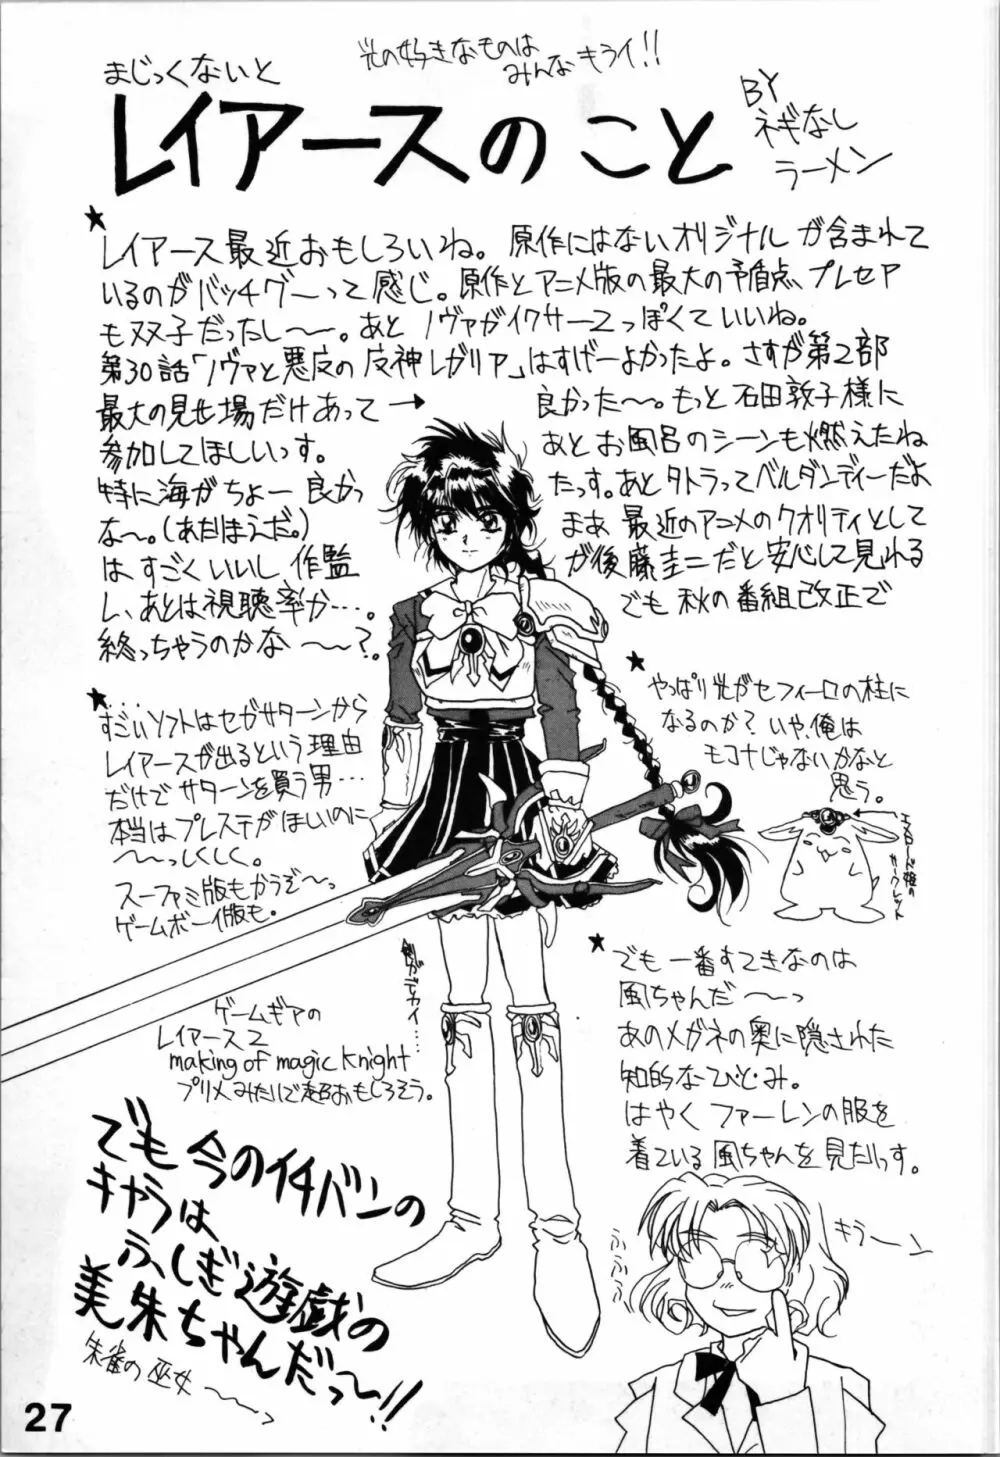 光の好きなものは
みんなキライ!!
まじっくないと
レイアースのこと
BY
ネギなし
ラーメン
★
レイアース最近おもしろいね。原作にはないオリジナルが含まれて
いるのがバッチグーって感じ。原作とアニメ版の最大の矛盾点、プレセア
も双子だったし〜〜。あとノヴァがイクサー2っぽくていいね。
第30話「ノヴァと悪夜の魔神レガリア」はすげーよかったよ。さすが第2部
最大の見せ場だけあって→ 良かった〜〜。もっと石田敦子様に
参加してほしいっす。 あとお風呂のシーンも燃えたね
特に海がちょー良かっ たっす。あとタトラってベルダンディーだよ
な〜。(あたほえだ。) まあ最近のアニメのクオリティとして
はすごくいいし作監 が後藤圭二だと安心して見れる
し、あとは視聴率か…。 でも秋の番組改正で
終っちゃうのかな〜〜?。
★……
すごいソフトはセガサターンから
レイアースが出るという理由
だけでサターンを買う男…
本当はプレステがほしいのに
〜〜っしくしく。
スーファミ版もかうぞ〜っ
ゲームボーイ版も。
★
やっぱり光がセフィーロの柱に
なるのか?いや、俺は
モコナじゃないかなと
思う。
エメロード姫の
サークレット
剣がデカイ……
ゲームギアの
レイアース2
making of magic knight
プリメみたいで超おもしろそう。
★
でも一番すてきなのは
風ちゃんだ〜〜っ
あのメガネの奥に隠された
知的なひとみ。
はやくファーレンの服を
着ている風ちゃんを見たいっす。
キラーン
ふふふ
でも今のイチバンの
キャラは
ふしぎ遊戯の
美朱ちゃんだっ〜!!
朱雀の巫女〜〜っ
27